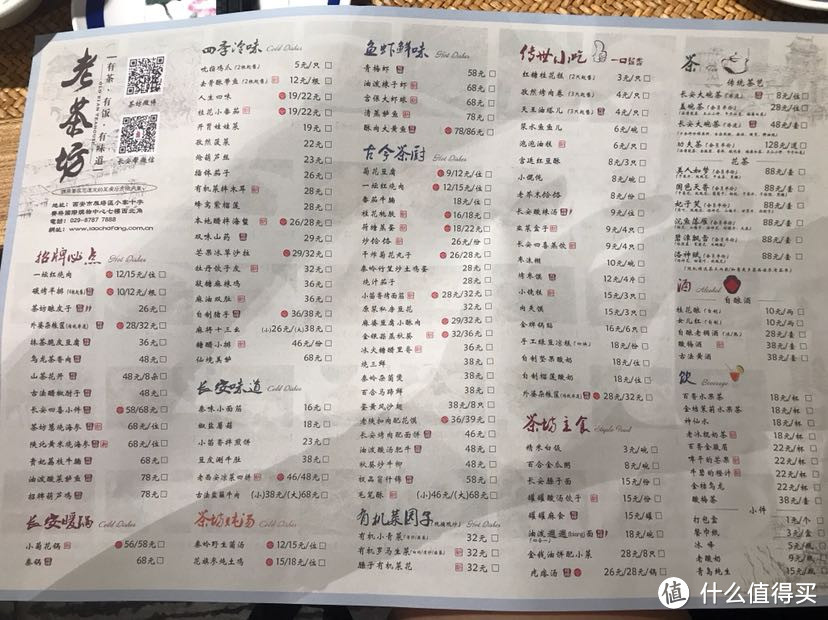 老茶坊
有茶·有饭·有味道
茶坊微博
长安荟微信
電話：029-8787 7888
網址：www.laochafang.com.cn
招牌必点 Hot Dishes
一坛红烧肉 12/15元/位
碳烤羊排 10/12元/根
茶坊酿皮子 26元
外婆杂粮筐 28/32元
抹茶脆皮豆腐 36元
乌龙茶香肉 48元
山茶花开 48元/8朵
古法醋椒肘子 48元
长安四喜小件 58/68元
茶坊葱烧海参 68元
陕北黄米烧海参 68元
贵妃荔枝牛腩 68元
油泼酸菜鲈鱼 78元
招牌葫芦鸡 78元
长安暖锅 Cold Dishes
小菊花锅 56/58元
秦锅 68元
四季冷味 Cold Dishes
吮指鸡爪(2只起售) 5元/只
去骨酥带鱼(2根起售) 12元/根
人生四味 19/22元
桂花小番茄 19/22元
开胃娃娃菜 19元
孤然菠菜 22元
炝葫芦丝 23元
捂体茄子 26元
有机菜拌木耳 28元
蜂窝紫榴莲 28元
本地醋拌海蜇 26/28元
双味山药 29元
芒果冰菜沙拉 29/32元
牡丹饺子皮 32元
凝糖麻辣鸡 36元
麻油双肚 36元
自制猪手 36/38元
麻将十三幺 (小)26元(大)38元
糖醋小排 46元/份
仙烧美鲈 68元
长安味道 Cold Dishes
秦味小面筋 16元
椒盐蘑菇 18元
小笛香拌煎饼 23元
豆皮涮牛肚 38元
老西安凉菜四拼 46/48元
古法盐腿牛肉 (小)38元(大)68元
茶坊炖汤 Cold Dishes
秦岭野生菌汤 12/15元/位
花旗参炖土鸡 15/18元/位
鱼虾鲜味 Hot Dishes
青梅虾 58元
油泼辣子虾 68元
宫张大虾球 68元
清蒸鲈鱼 78元
酥肉大黄鱼 78/86元
古今茶厨 Hot Dishes
菊花豆腐 9/12元/位
一坛红烧肉 12/15元/位
番茄牛腩 18元/位
桂花吮肽 16/18元
荷塘蒸蛋 18/22元
炒饸饹 26元/份
干炸菊花丸子 26/28元
秦岭竹笋炒土鸡蛋 28元
烧汁茄子 28元
小笛香烤面筋 28元/32元
原浆私磨豆花 32元
麻婆豆腐小酥肉 29/32元
金银蒜蒸秋葵 32/36元
冰火糖醋里脊 36元
烧三鲜 38元
秦岭杂菌煲 38元
百合马蹄鲜 38元
蜜黄风沙翅 38元/8只
老陕扣肉配花馍 36/39元
长安烤肉配面饼 46元
油泼酸汤肥牛 48元
秋葵炒牛柳 48元
极品富什锦 58元
毛笔酥 (小)46元/(大)68元
有机菜园子 Hot Dishes
有机小青菜 32元
有机罗马生菜 32元
腰子有机菜花 32元
传世小吃 一口留香
红糖桂花糕(2只起售) 3元/只
孜然烤肉卷(3只起售) 4元/只
天王油塔儿(3只起售) 4元/只
菜水鱼鱼儿 6元/碗
泡泡油糕 6元/只
宫廷红豆酥 6元/只
小馄饨 8元/碗
老荞木饸饹 9元/份
长安酸辣汤 9元/位
韭菜盒子 9元/只
长安四喜蒸饺 9元/只
枣沫糊 10元/碗
烤枣馍 12元/4片
小烧杠 15元/3只
肉夹馍 15元/只
金牌锅贴 16元/6只
手工绿豆凉糕 18元/份
自制坚果酸奶 18元/位
自制榴莲酸奶 18元/位
外婆杂粮筐 28元/32元
茶坊主食 Staple Food
精米白饭 3元/碗
百合金瓜粥 8元/碗
长安臊子面 15元/碗
罐罐酸汤饺子 15元/份
罐罐麻食 15元/碗
油泼𰻝𰻝(biang)面 15元/碗
金钱油饼配小菜 28元/8只
光疙汤 26元/28元/锅
茶 传统茶艺
长安大碗茶 8元/位
盖碗茶 28元/位
长安大碗茶 48元/壶
功夫茶 128元/道
花茶
美人如梦 88元/壶
国色天香 88元/壶
妃子笑 88元/壶
沉鱼落雁 88元/壶
碧潭飘雪 88元/壶
洛神赋 88元/壶
酒 Alcohol
自酿酒
桂花酿 10元/两
女儿红 10元/两
自酿老稠酒 28元/壶
酸梅酒 38元/壶
古法黄酒 38元/壶
饮 Beverage
百香水果茶 18元/杯
金桔茉莉水果茶 18元/杯
神仙水 18元/杯
老冰棍奶茶 18元/杯
百香金凝眉 22元/杯
啤午的芒果 22元/杯
牛碧的橙汁 22元/杯
金桔乌龙 22元/杯
酸梅茶 38元/壶
小件
打包盒 1元/个
餐巾纸 3元/盒
冰峰 5元/瓶
老酸奶 9元/瓶
青岛纯生 15元/瓶
值 什么值得买